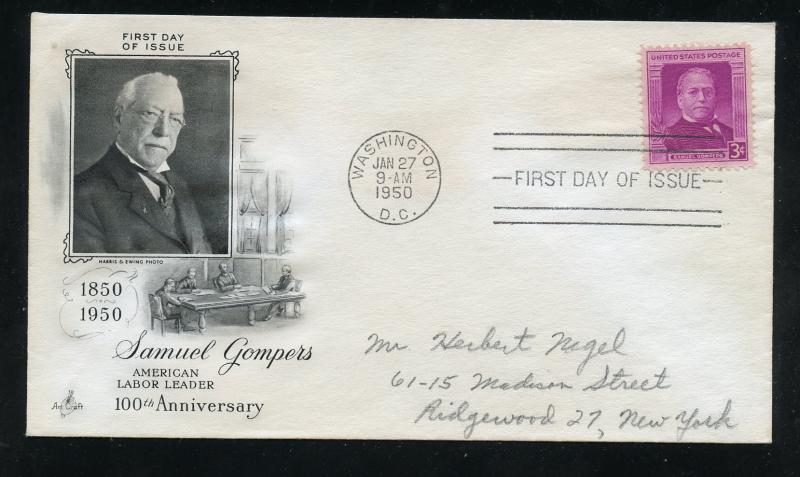 FIRST DAY
OF ISSUE
HARRIS & EWING PHOTO
1850
1950
Samuel Gompers
AMERICAN
LABOR LEADER
100th Anniversary
Art Craft
WASHINGTON
JAN 27
9-AM
1950
D.C.
UNITED STATES POSTAGE
SAMUEL GOMPERS
3¢
FIRST DAY OF ISSUE
Mr. Herbert Nagel
61-15 Madison Street
Ridgewood 27, New York